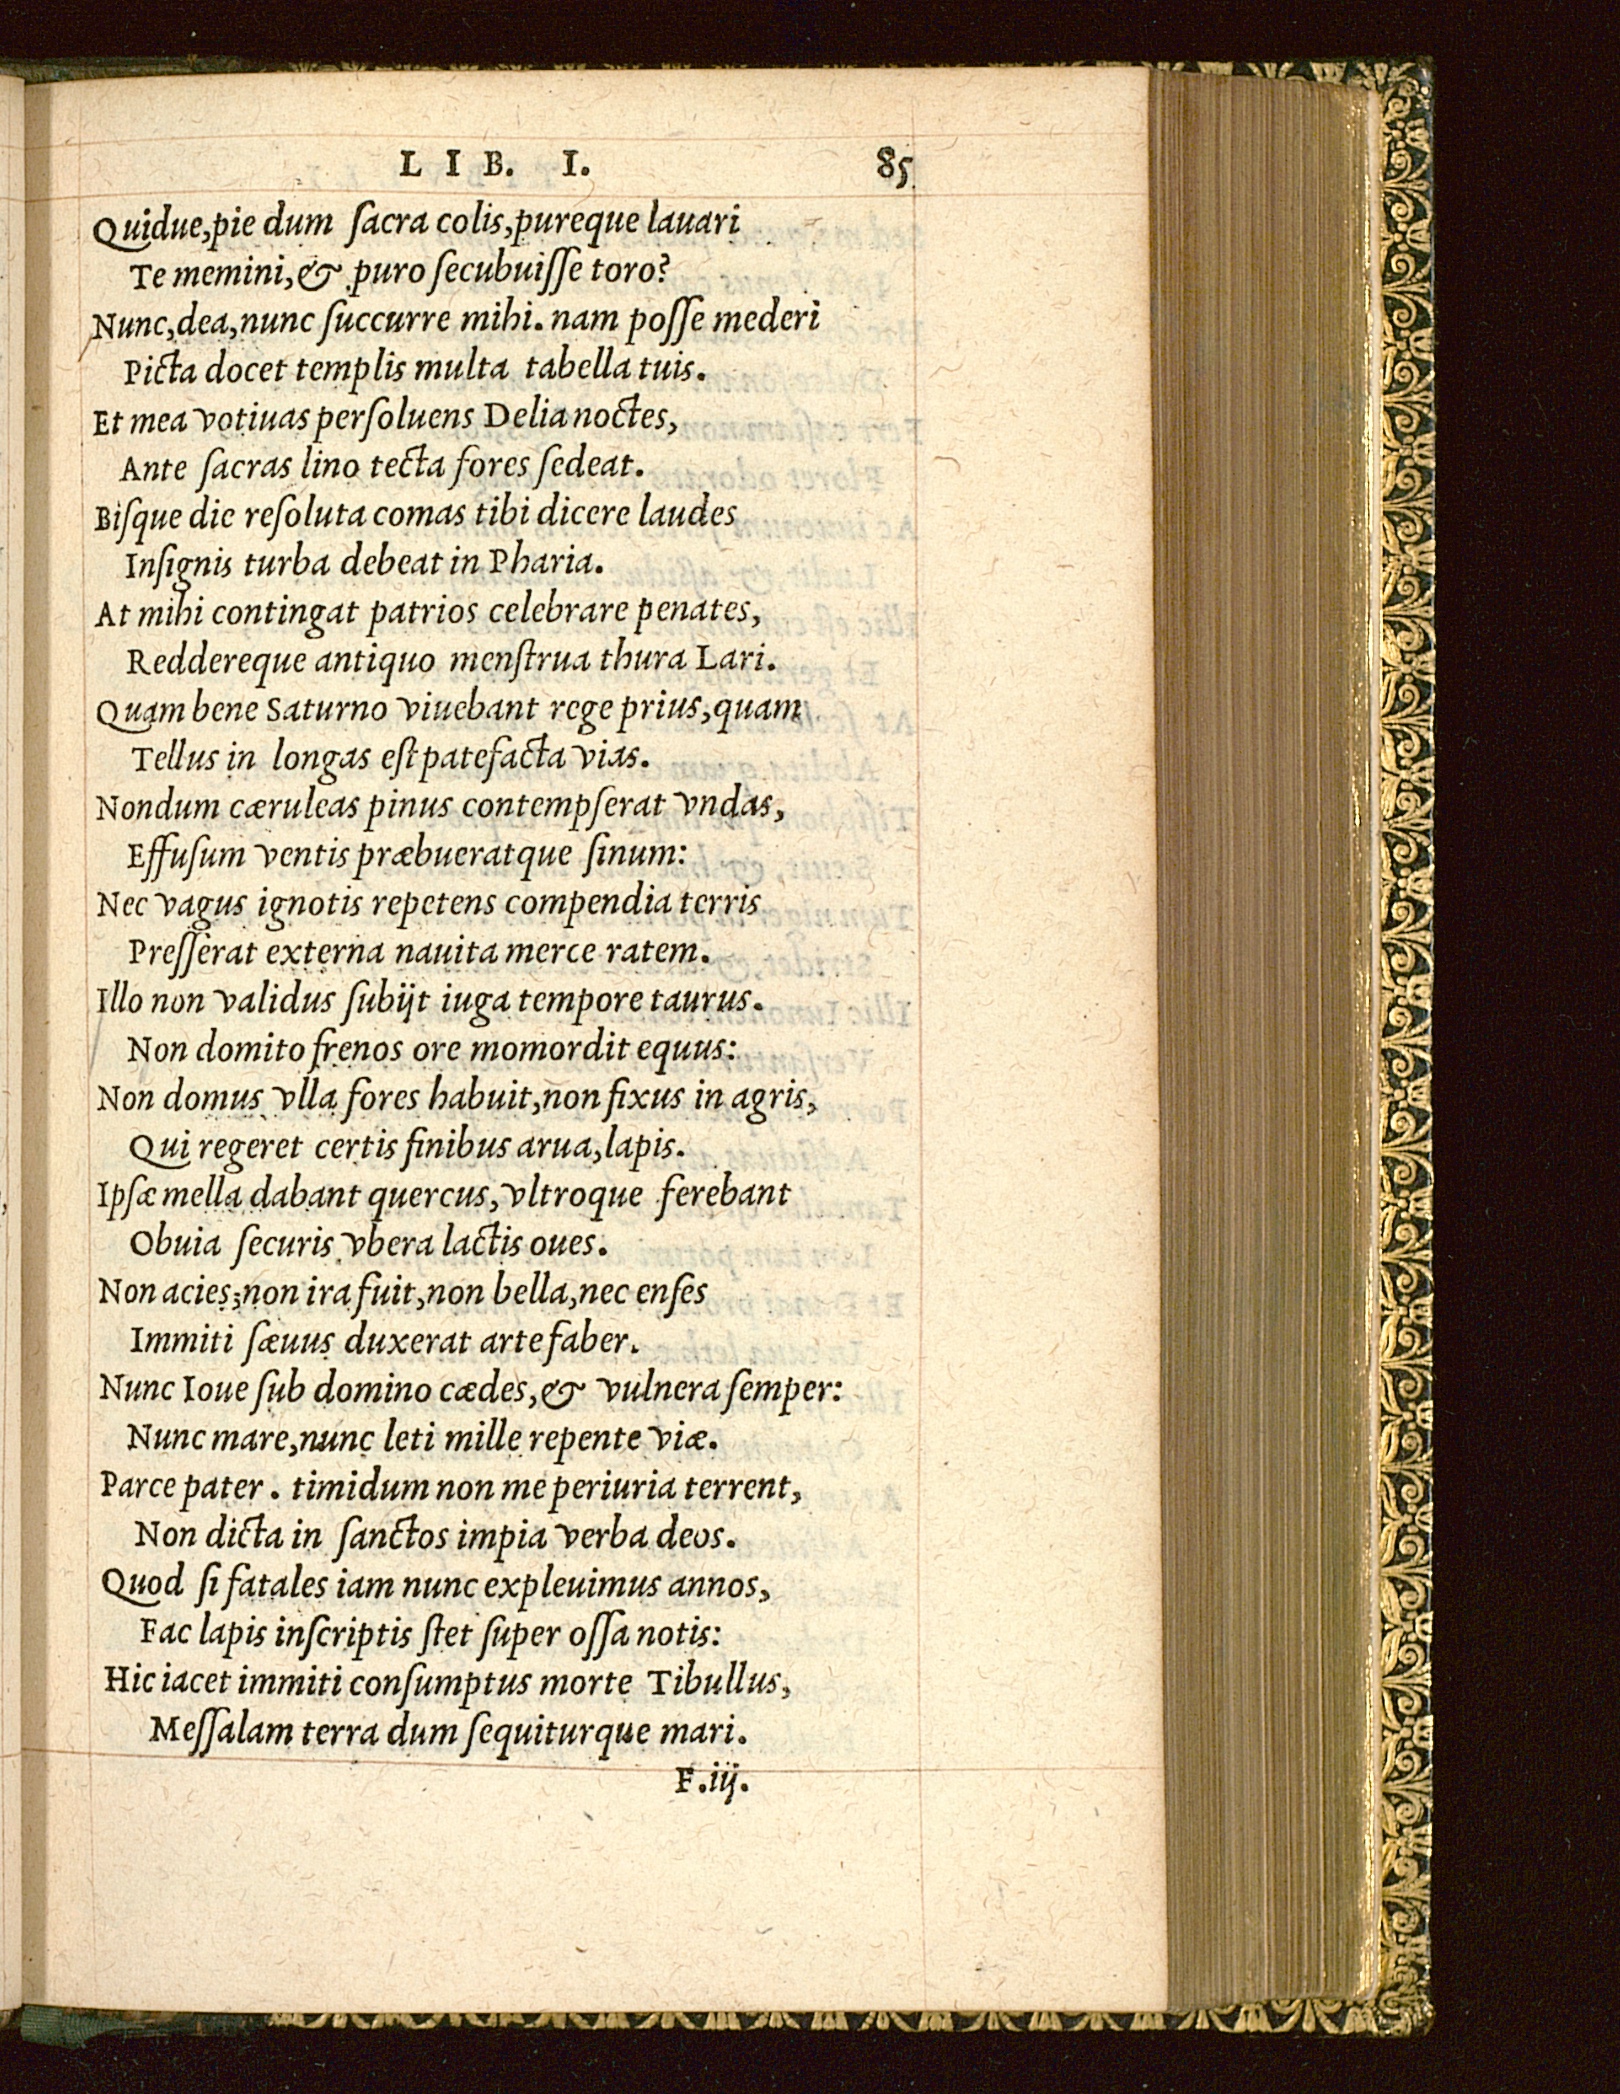 LIB. I. 85
Quidue, pie dum ſacra colis, pureque lauari
Te memini, & puro ſecubuiſſe toro?
Nunc, dea, nunc ſuccurre mihi. nam poſſe mederi
Picta docet templis multa tabella tuis.
Et mea votiuas perſoluens Delia noctes,
Ante ſacras lino tecta fores ſedeat.
Biſque die reſoluta comas tibi dicere laudes
Inſignis turba debeat in Pharia.
At mihi contingat patrios celebrare penates,
Reddereque antiquo menſtrua thura Lari.
Quam bene Saturno viuebant rege prius, quam
Tellus in longas eſt patefacta vias.
Nondum cæruleas pinus contempſerat vndas,
Effuſum ventis præbueratque ſinum:
Nec vagus ignotis repetens compendia terris
Preſſerat externa nauita merce ratem.
Illo non validus ſubijt iuga tempore taurus.
Non domito frenos ore momordit equus:
Non domus vlla fores habuit, non fixus in agris,
Qui regeret certis finibus arua, lapis.
Ipſæ mella dabant quercus, vltroque ferebant
Obuia ſecuris vbera lactis oues.
Non acies, non ira fuit, non bella, nec enſes
Immiti ſæuus duxerat arte faber.
Nunc Ioue ſub domino cædes, & vulnera ſemper:
Nunc mare, nunc leti mille repente viæ.
Parce pater. timidum non me periuria terrent,
Non dicta in ſanctos impia verba deos.
Quod ſi fatales iam nunc expleuimus annos,
Fac lapis inſcriptis ſtet ſuper oſſa notis:
Hic iacet immiti conſumptus morte Tibullus,
Meſſalam terra dum ſequiturque mari.
F.iij.